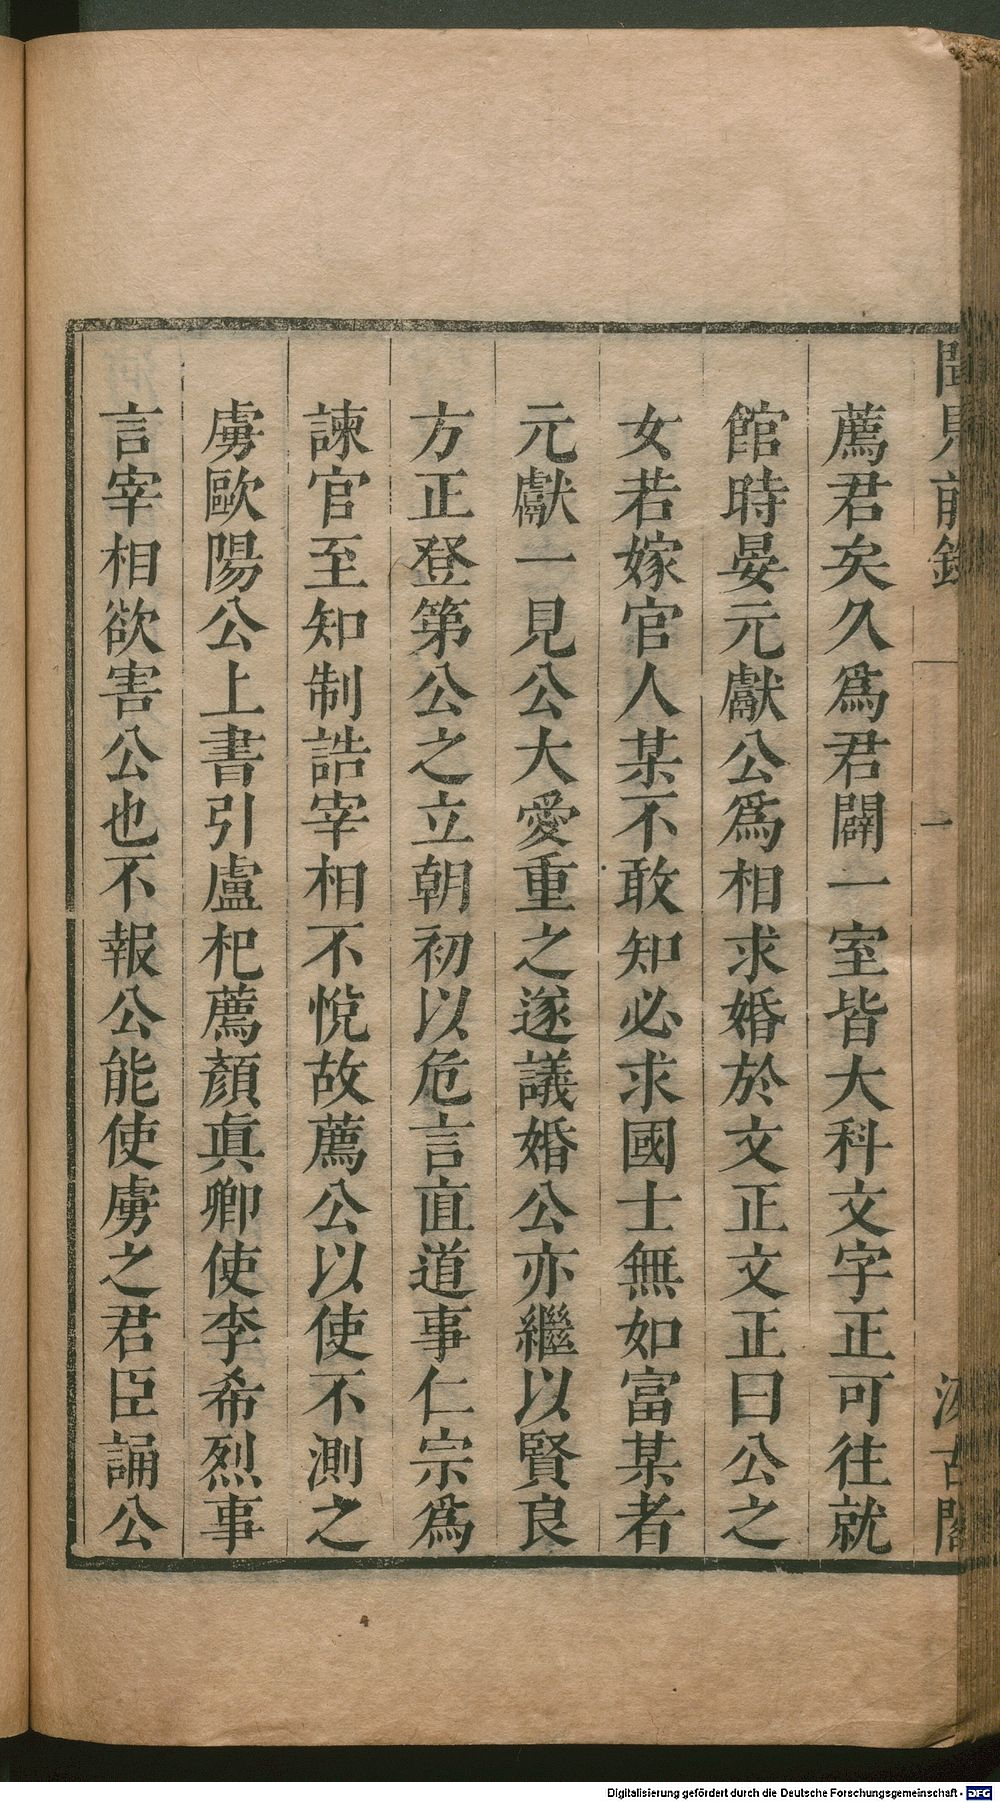 聞見前錄
一
汲古閣
薦君矣久爲君闢一室皆大科文字正可往就
館時晏元獻公爲相求婚於文正文正曰公之
女若嫁官人某不敢知必求國士無如富某者
元獻一見公大愛重之遂議婚公亦繼以賢良
方正登第公之立朝初以危言直道事仁宗爲
諫官至知制誥宰相不悅故薦公以使不測之
虜歐陽公上書引盧杞薦顏眞卿使李希烈事
言宰相欲害公也不報公能使虜之君臣誦公
Digitalisierung gefördert durch die Deutsche Forschungsgemeinschaft - DFG